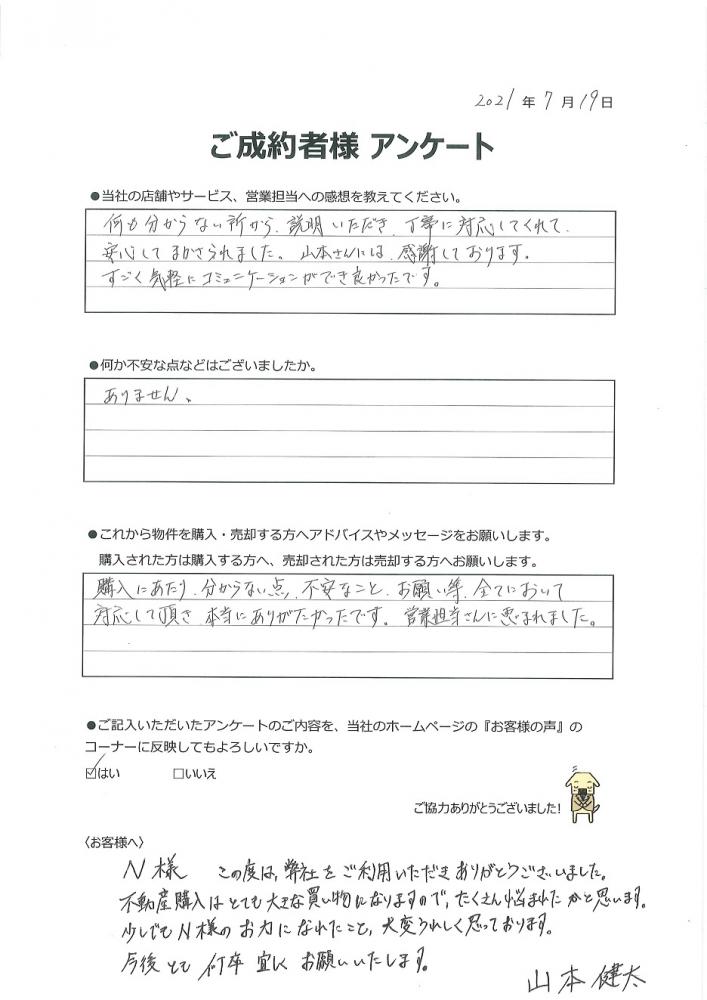 2021年7月19日
ご成約者様 アンケート
●当社の店舗やサービス、営業担当への感想を教えてください。
何も分からない所から、説明いただき、丁寧に対応してくれて、
安心してまかせられました。山本さんには、感謝しております。
すごく気軽にコミュニケーションができ良かったです。
●何か不安な点などはございましたか。
ありません。
●これから物件を購入・売却する方へアドバイスやメッセージをお願いします。
購入された方は購入する方へ、売却された方は売却する方へお願いします。
購入にあたり、分からない点、不安なこと、お願い等、全てにおいて
対応して頂き 本当にありがたかったです。営業担当さんに恵まれました。
●ご記入いただいたアンケートのご内容を、当社のホームページの『お客様の声』の
コーナーに反映してもよろしいですか。
☑はい □いいえ
ご協力ありがとうございました!
〈お客様へ〉
N様 この度は、弊社をご利用いただきありがとうございました。
不動産購入はとても大きな買い物になりますので、たくさん悩まれたかと思います。
少しでもN様のお力になれたこと、大変うれしく思っております。
今後とも何卒宜しくお願いいたします。
山本健太